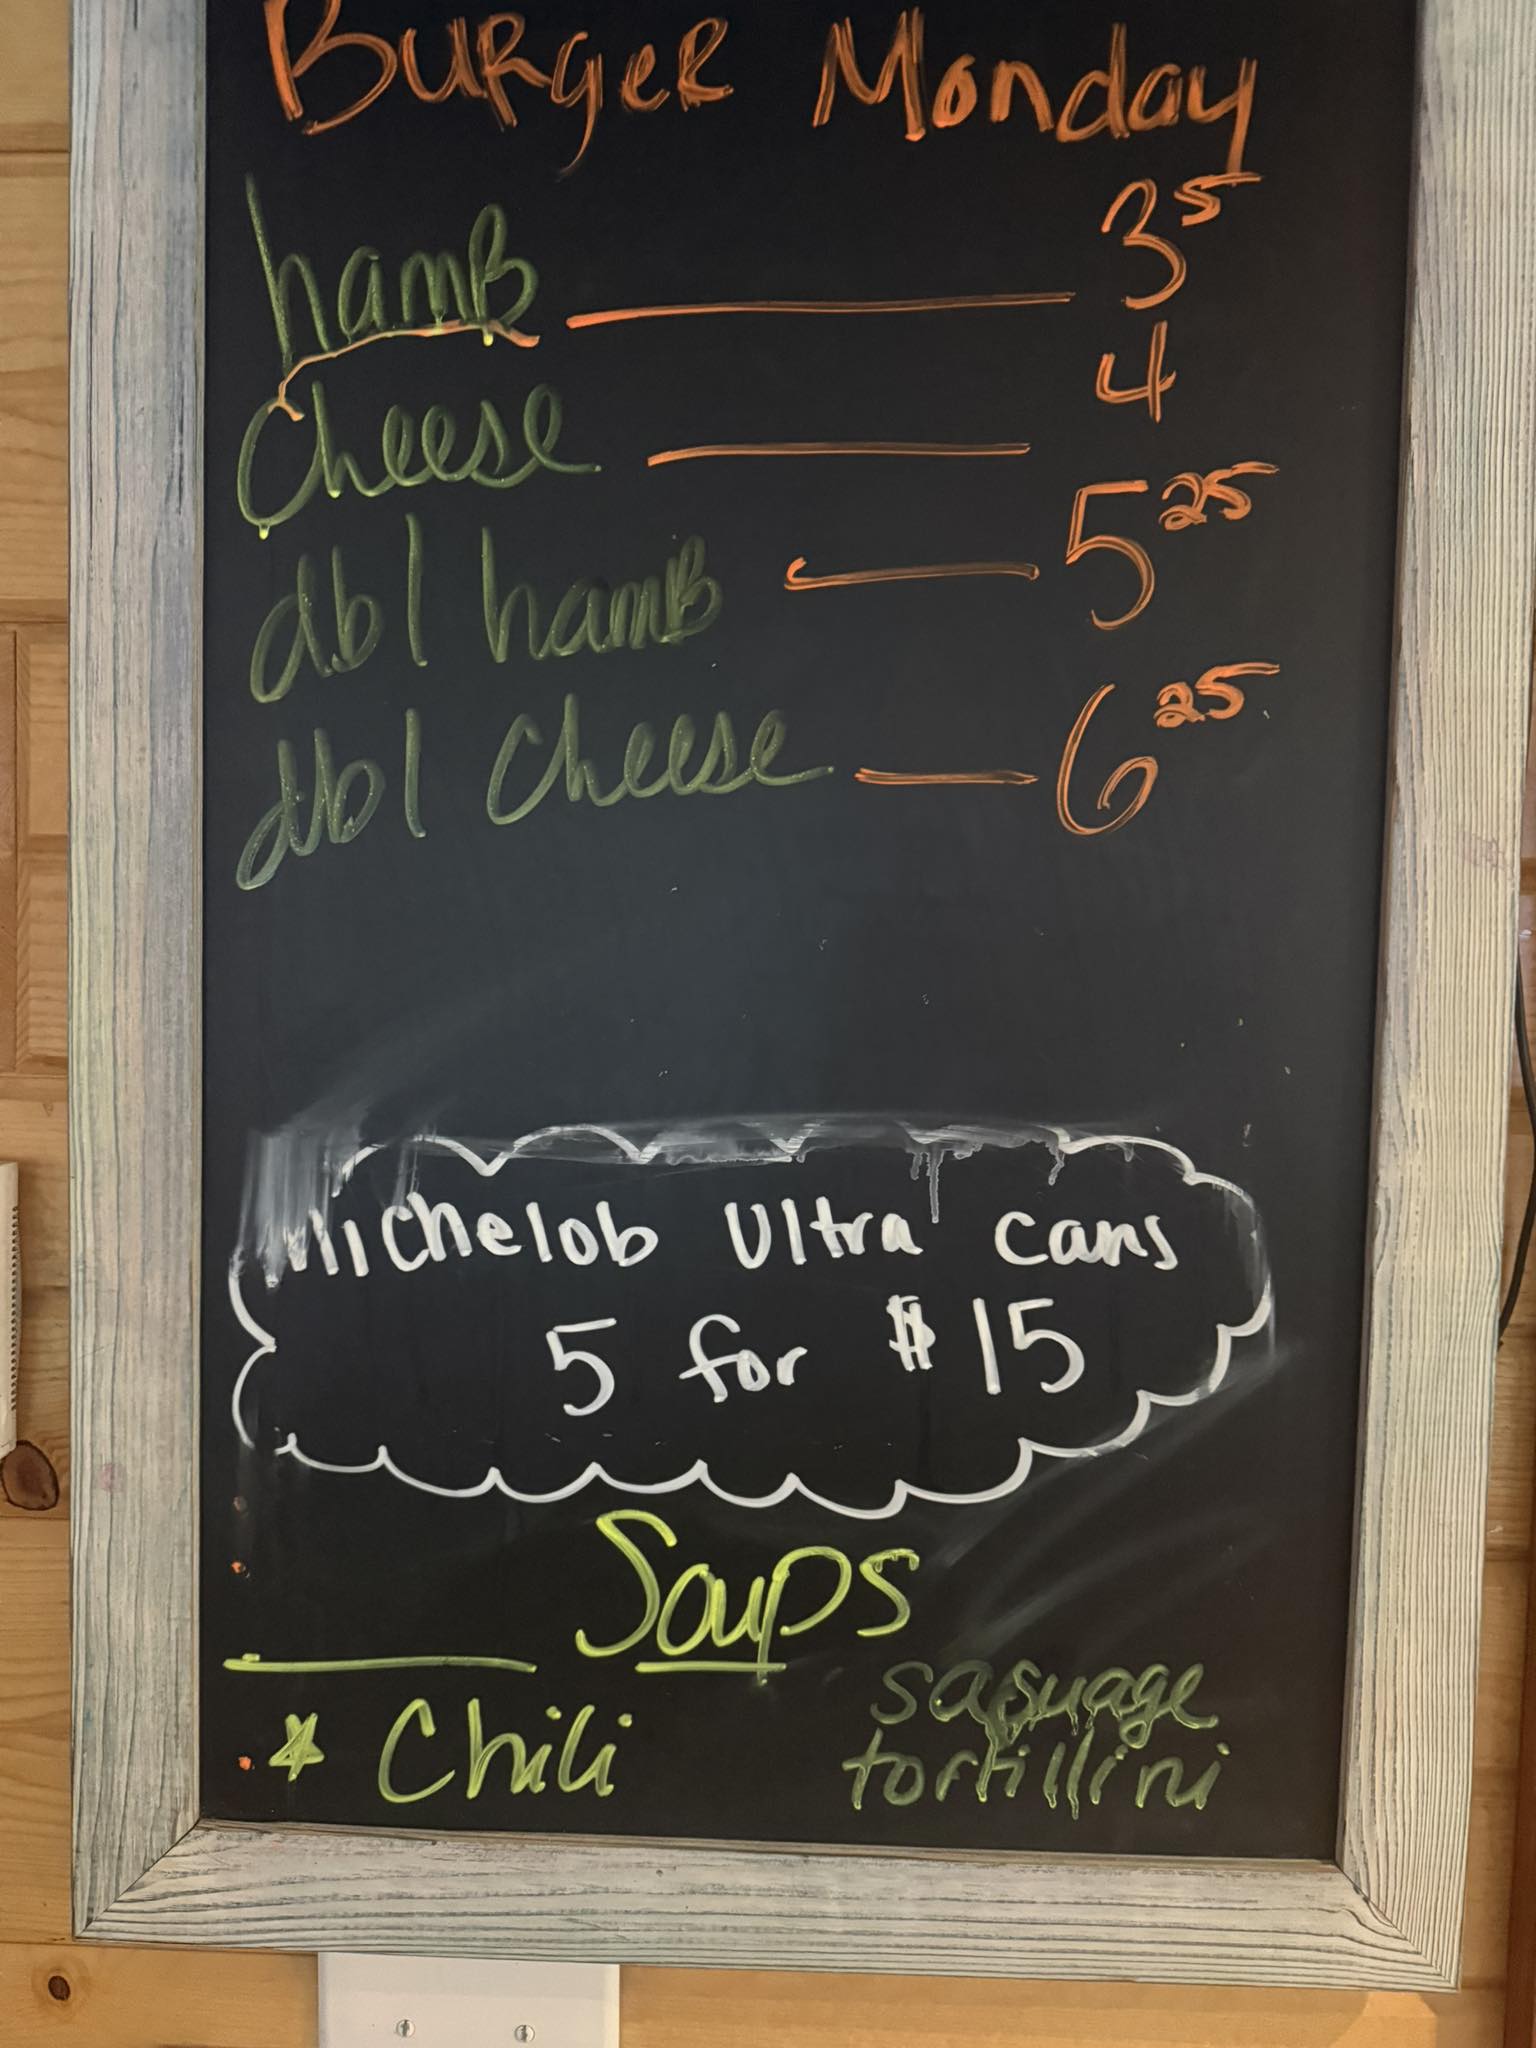 Burger Monday
hamB 3 5
Cheese 4
dbl hamB 5 25
dbl Cheese 6 25
Michelob Ultra cans
5 for $15
Soups
* Chili
sasuage
tortillini